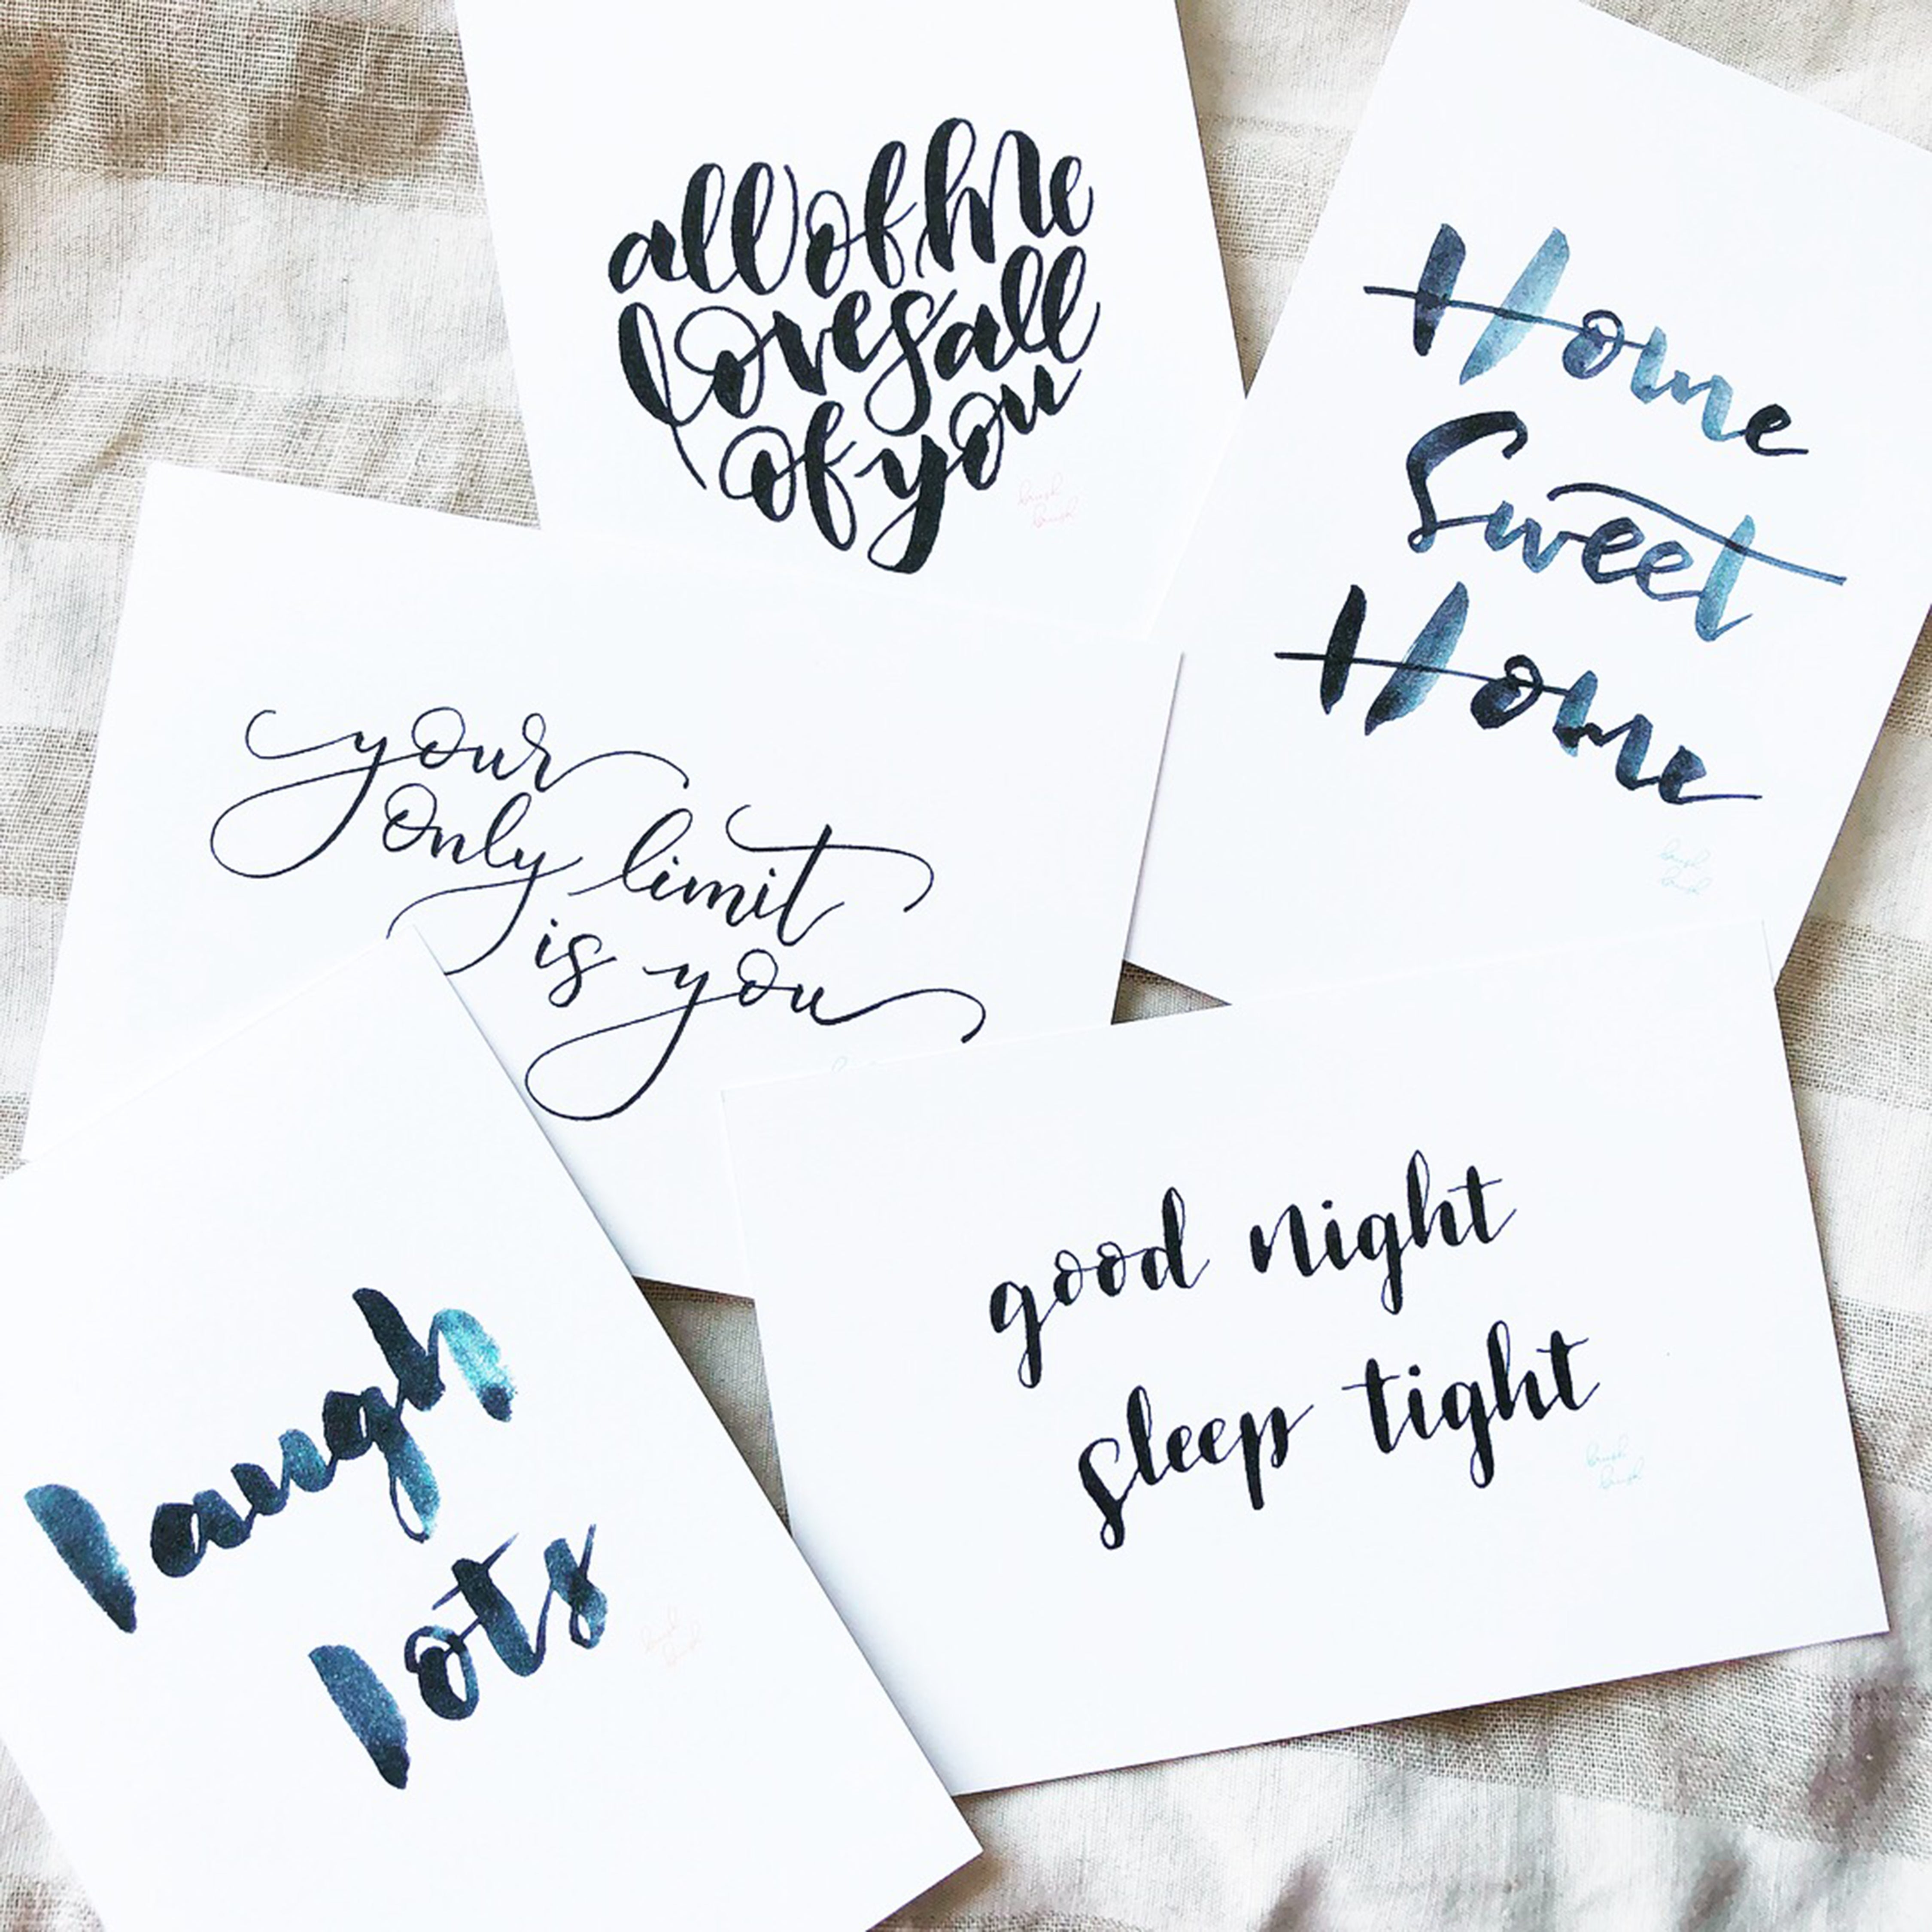 all of me
loves all
of you
brush
brush
Home
Sweet
Home
brush
brush
your
only limit
is you
good night
sleep tight
brush
brush
laugh
lots
brush
brush